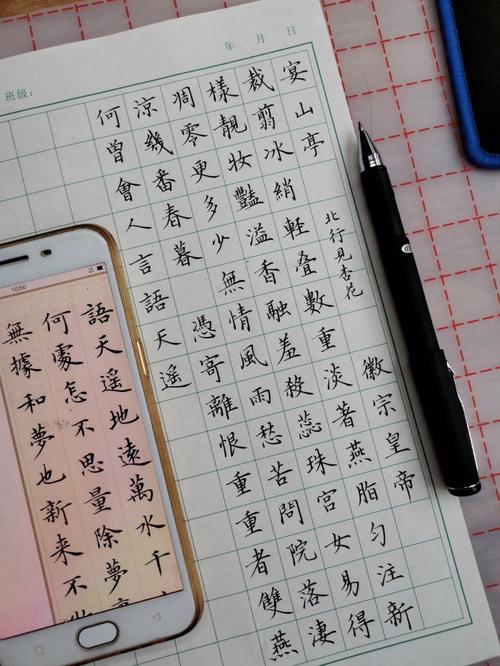 班级：
年 月 日
宴山亭 北行見杏花 徽宗皇帝
裁翦冰綃輕叠數重淡著燕脂匀注新
樣靚妝豔溢香融羞殺蕊珠宮女易得
凋零更多少無情風雨愁苦問院落淒
涼幾番春暮 憑寄離恨重重者雙燕
何曾會人言語天遥
10:50
語天遥地遠萬水千
何處怎不思量除夢
無據和夢也新來不